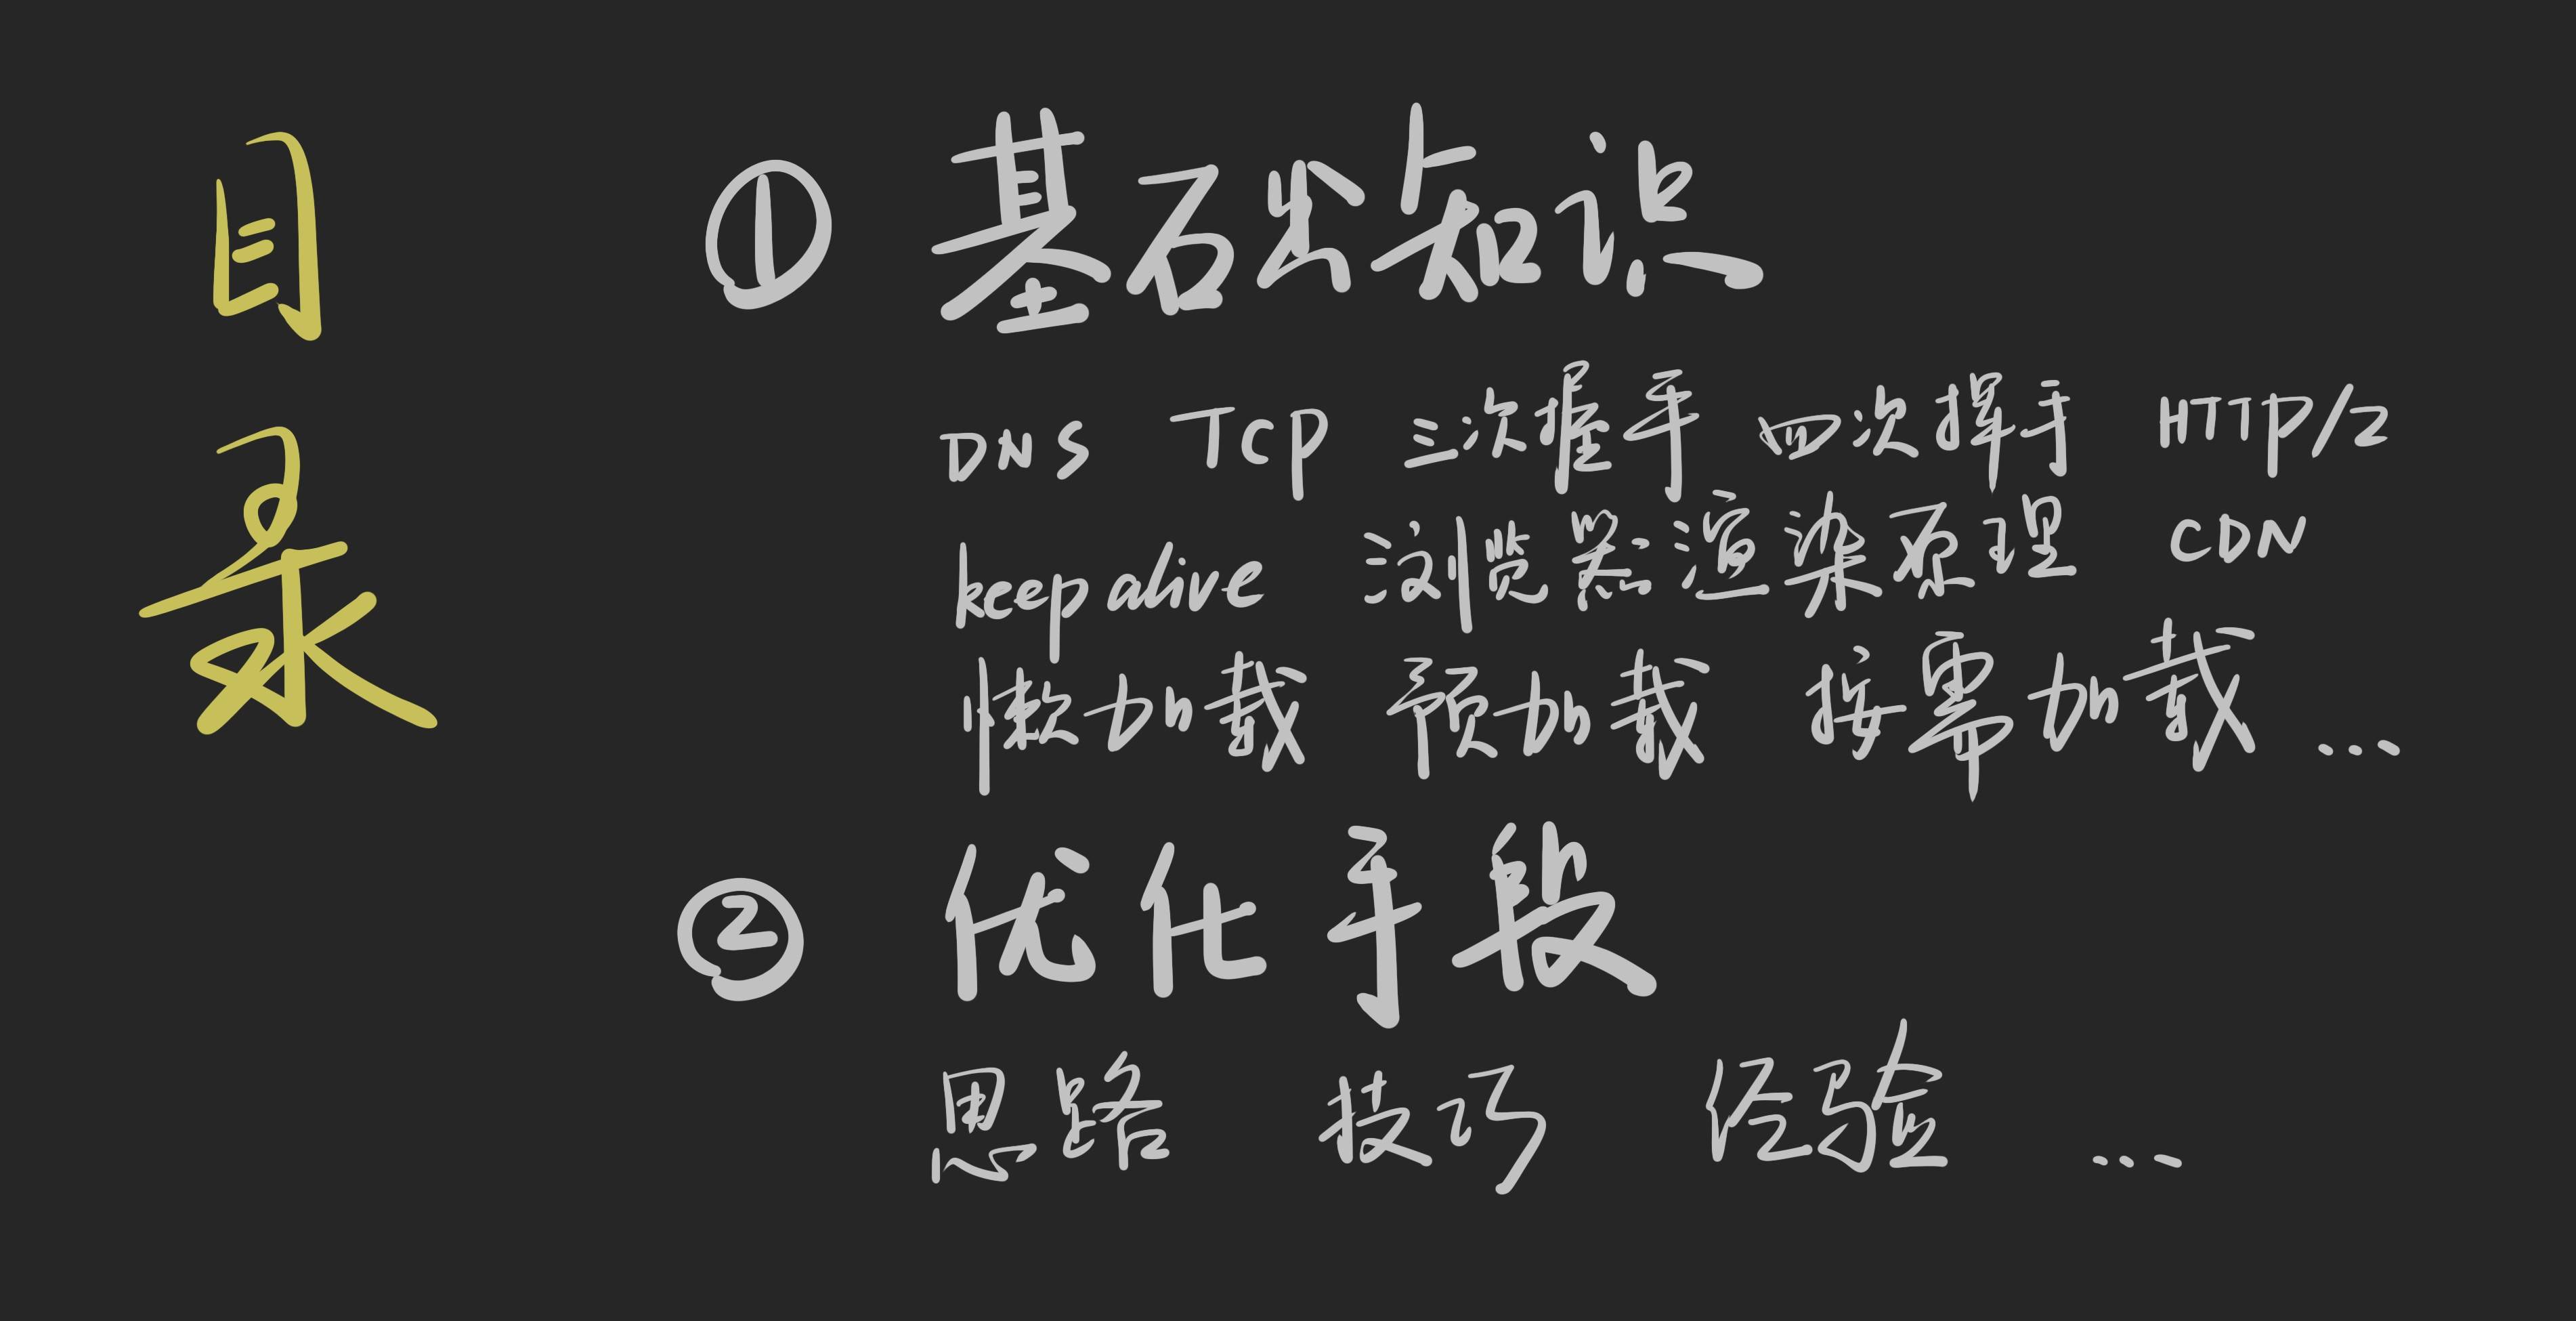 目录
① 基础知识
DNS TCP 三次握手 四次挥手 HTTP/2
keep alive 浏览器渲染原理 CDN
懒加载 预加载 按需加载 ...
② 优化手段
思路 技巧 经验 ...